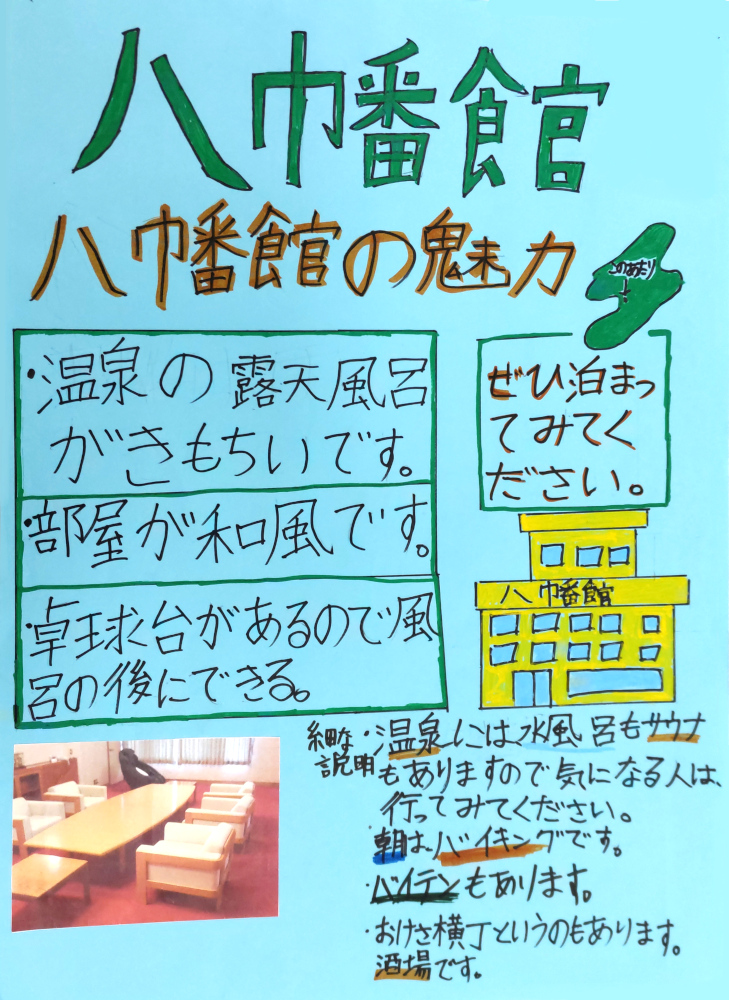 八幡館
八幡館の魅力
このあたり
・温泉の露天風呂
がきもちいです。
・部屋が和風です。
・卓球台があるので風
呂の後にできる。
ぜひ泊まっ
てみてく
ださい。
八幡館
細かな
説明
・温泉には、水風呂もサウナ
もありますので気になる人は、
行ってみてください。
・朝は、バイキングです。
・バイテンもあります。
・おけさ横丁というのもあります。
酒場です。